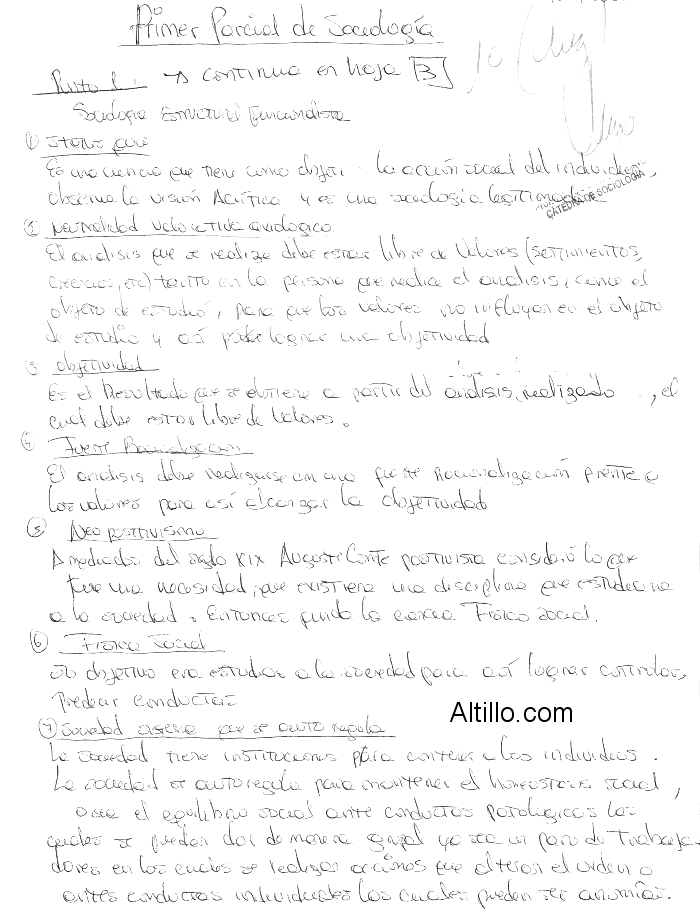 Primer Parcial de Sociología
Punto 1: → continua en hoja 3
Sociologia Estructural Funcionalista
① Status quo
Es una ciencia que tiene como objeti la acción social del individuo,
observa la visión Acrítica y es una sociologia legitimadora
CATEDRA DE SOCIOLOGIA
2 Neutralidad Valorativa axiológico
El análisis que se realize debe estar libre de Valores (sentimientos,
creencias, etc) tanto en la persona que realiza el analisis, como el
objeto de estudio, para que los valores no influyan en el objeto
de estudio y así poder lograr una objetividad
3 objetividad
Es el Resultado que se obtiene a partir del análisis realizado, el
cual debe estar libre de Valores.
4 Fuerte Racionalización
El analisis debe realizarse con una fuerte Racionalización frente a
los valores para así alcanzar la objetividad
⑤ Neopositivismo
A mediados del siglo XIX August Comte positivista consideró lo que
fue una necesidad, que existiera una disciplina que estudiara
a la sociedad. Entonces funda la ciencia Física Social.
⑥ Fisica social
Su objetivo era estudiar a la sociedad para así lograr controlar,
Predecir conductas
Altillo.com
7 Sociedad sistema que se auto regula
La sociedad tiene instituciones para contener a los individuos.
La sociedad se autoregula para mantener el homeostasis social,
o sea el equilibrio social ante conductas patologicas las
cuales se pueden dar de manera grupal ya sea un paro de Trabaja-
dores en los cuales se realizan acciones que alteran el orden o
antes conductas individuales las cuales pueden ser anomias.